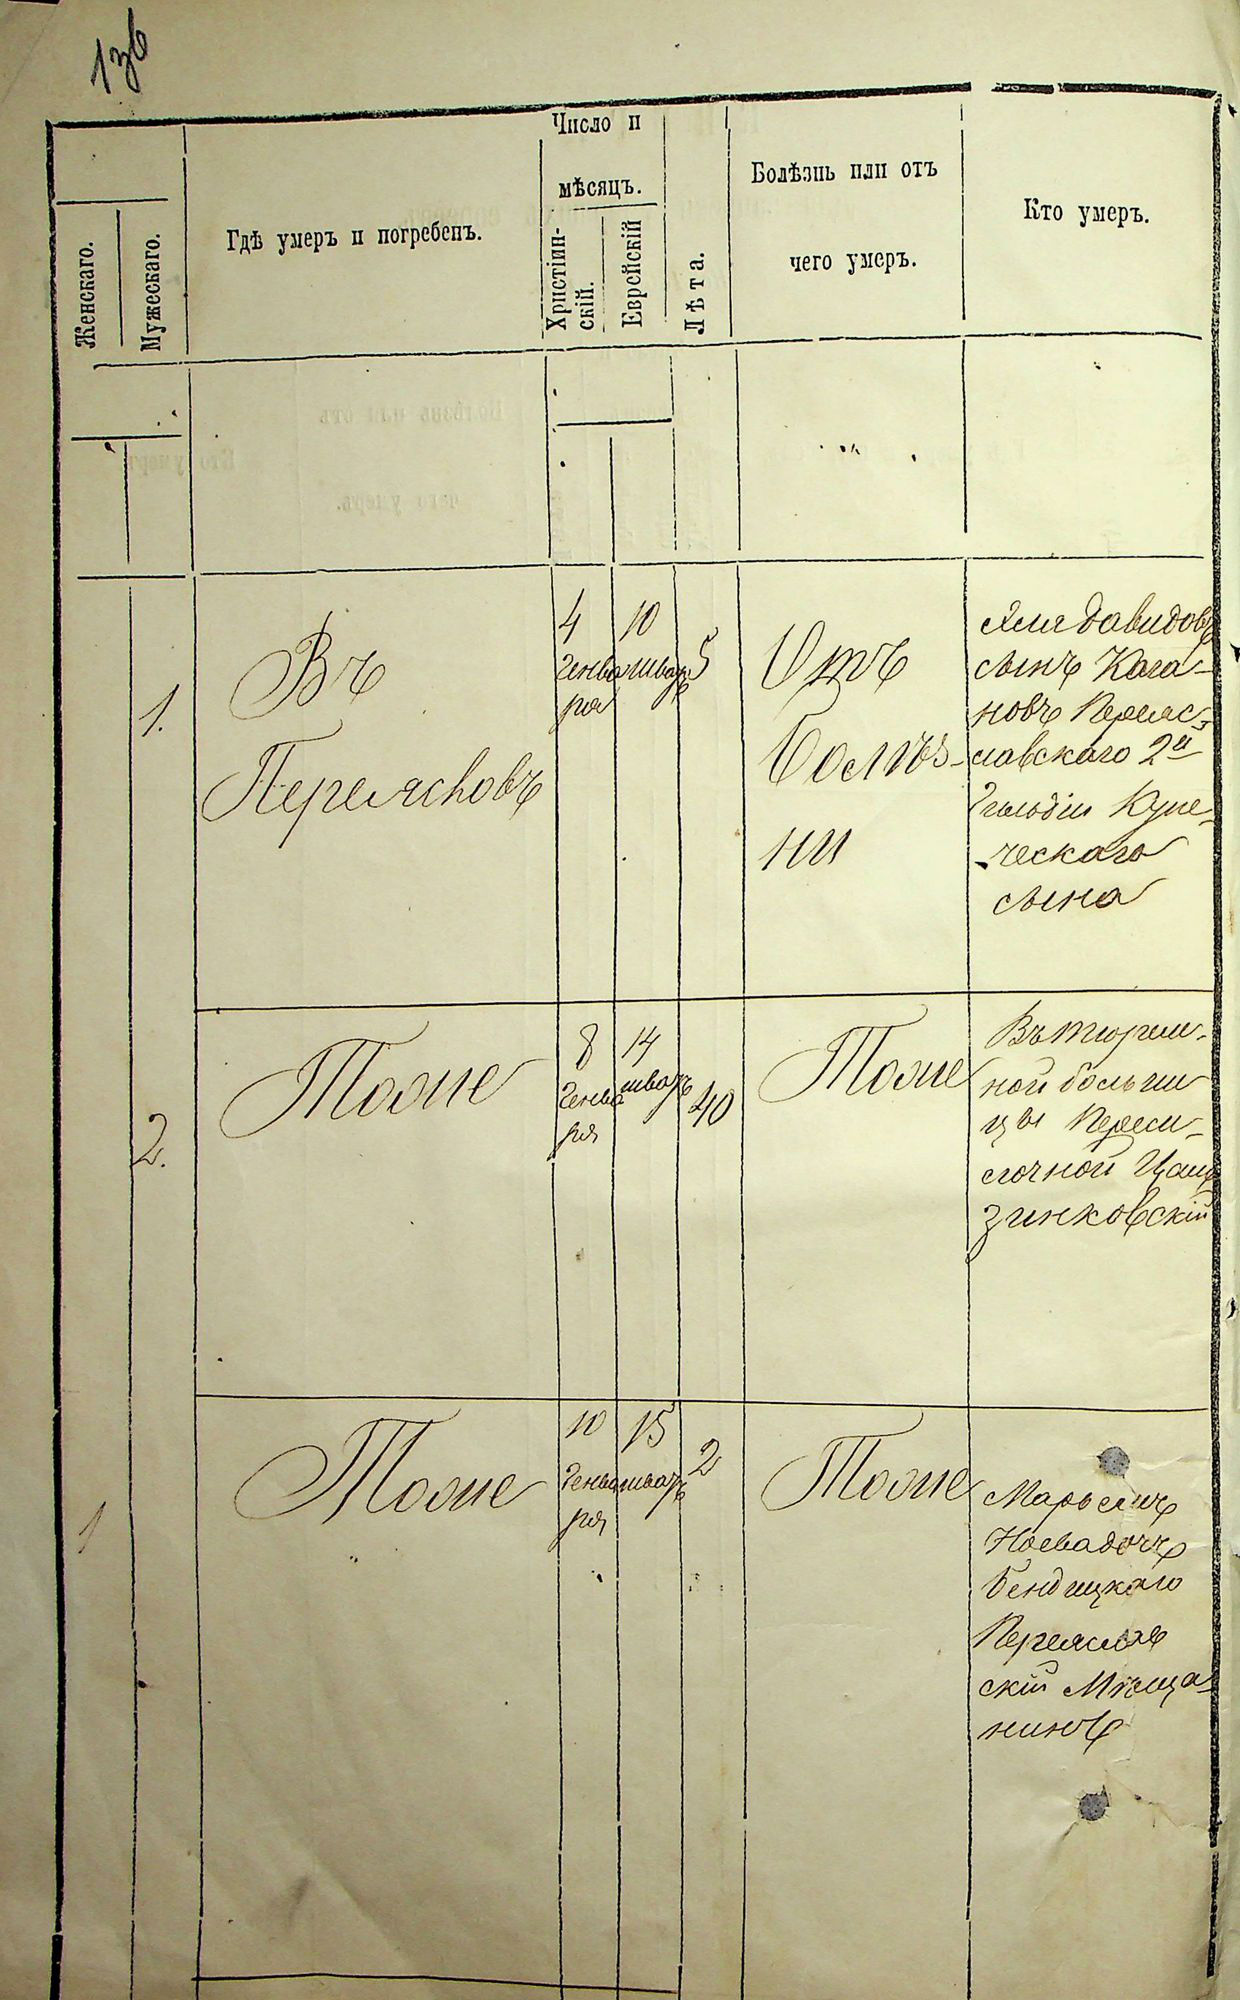 136
Женскаго.
Мужескаго.
Гдѣ умеръ и погребенъ.
Число и
мѣсяцъ.
Христіин-
скій.
Еврейскій
Лѣта.
Болѣзнь или отъ
чего умеръ.
Кто умеръ.
1.
Въ
Переясковъ
4
Генва
ря
10
шватъ
5
Отъ
Болѣз-
ни
Давидовъ
сынъ Кага-
новъ Переяс-
лавскаго 2й
Гильдіи Купе-
ческаго
сына
2.
Тоже
8
Генва
ря
14
шватъ
40
Тоже
Въ тюрем-
ной больни
цы Переси-
лочной
Зинковскій
1
Тоже
10
Генва
ря
15
шватъ
2
Тоже
Бендицкаго
Переяслав
скій Мѣща-
нинъ